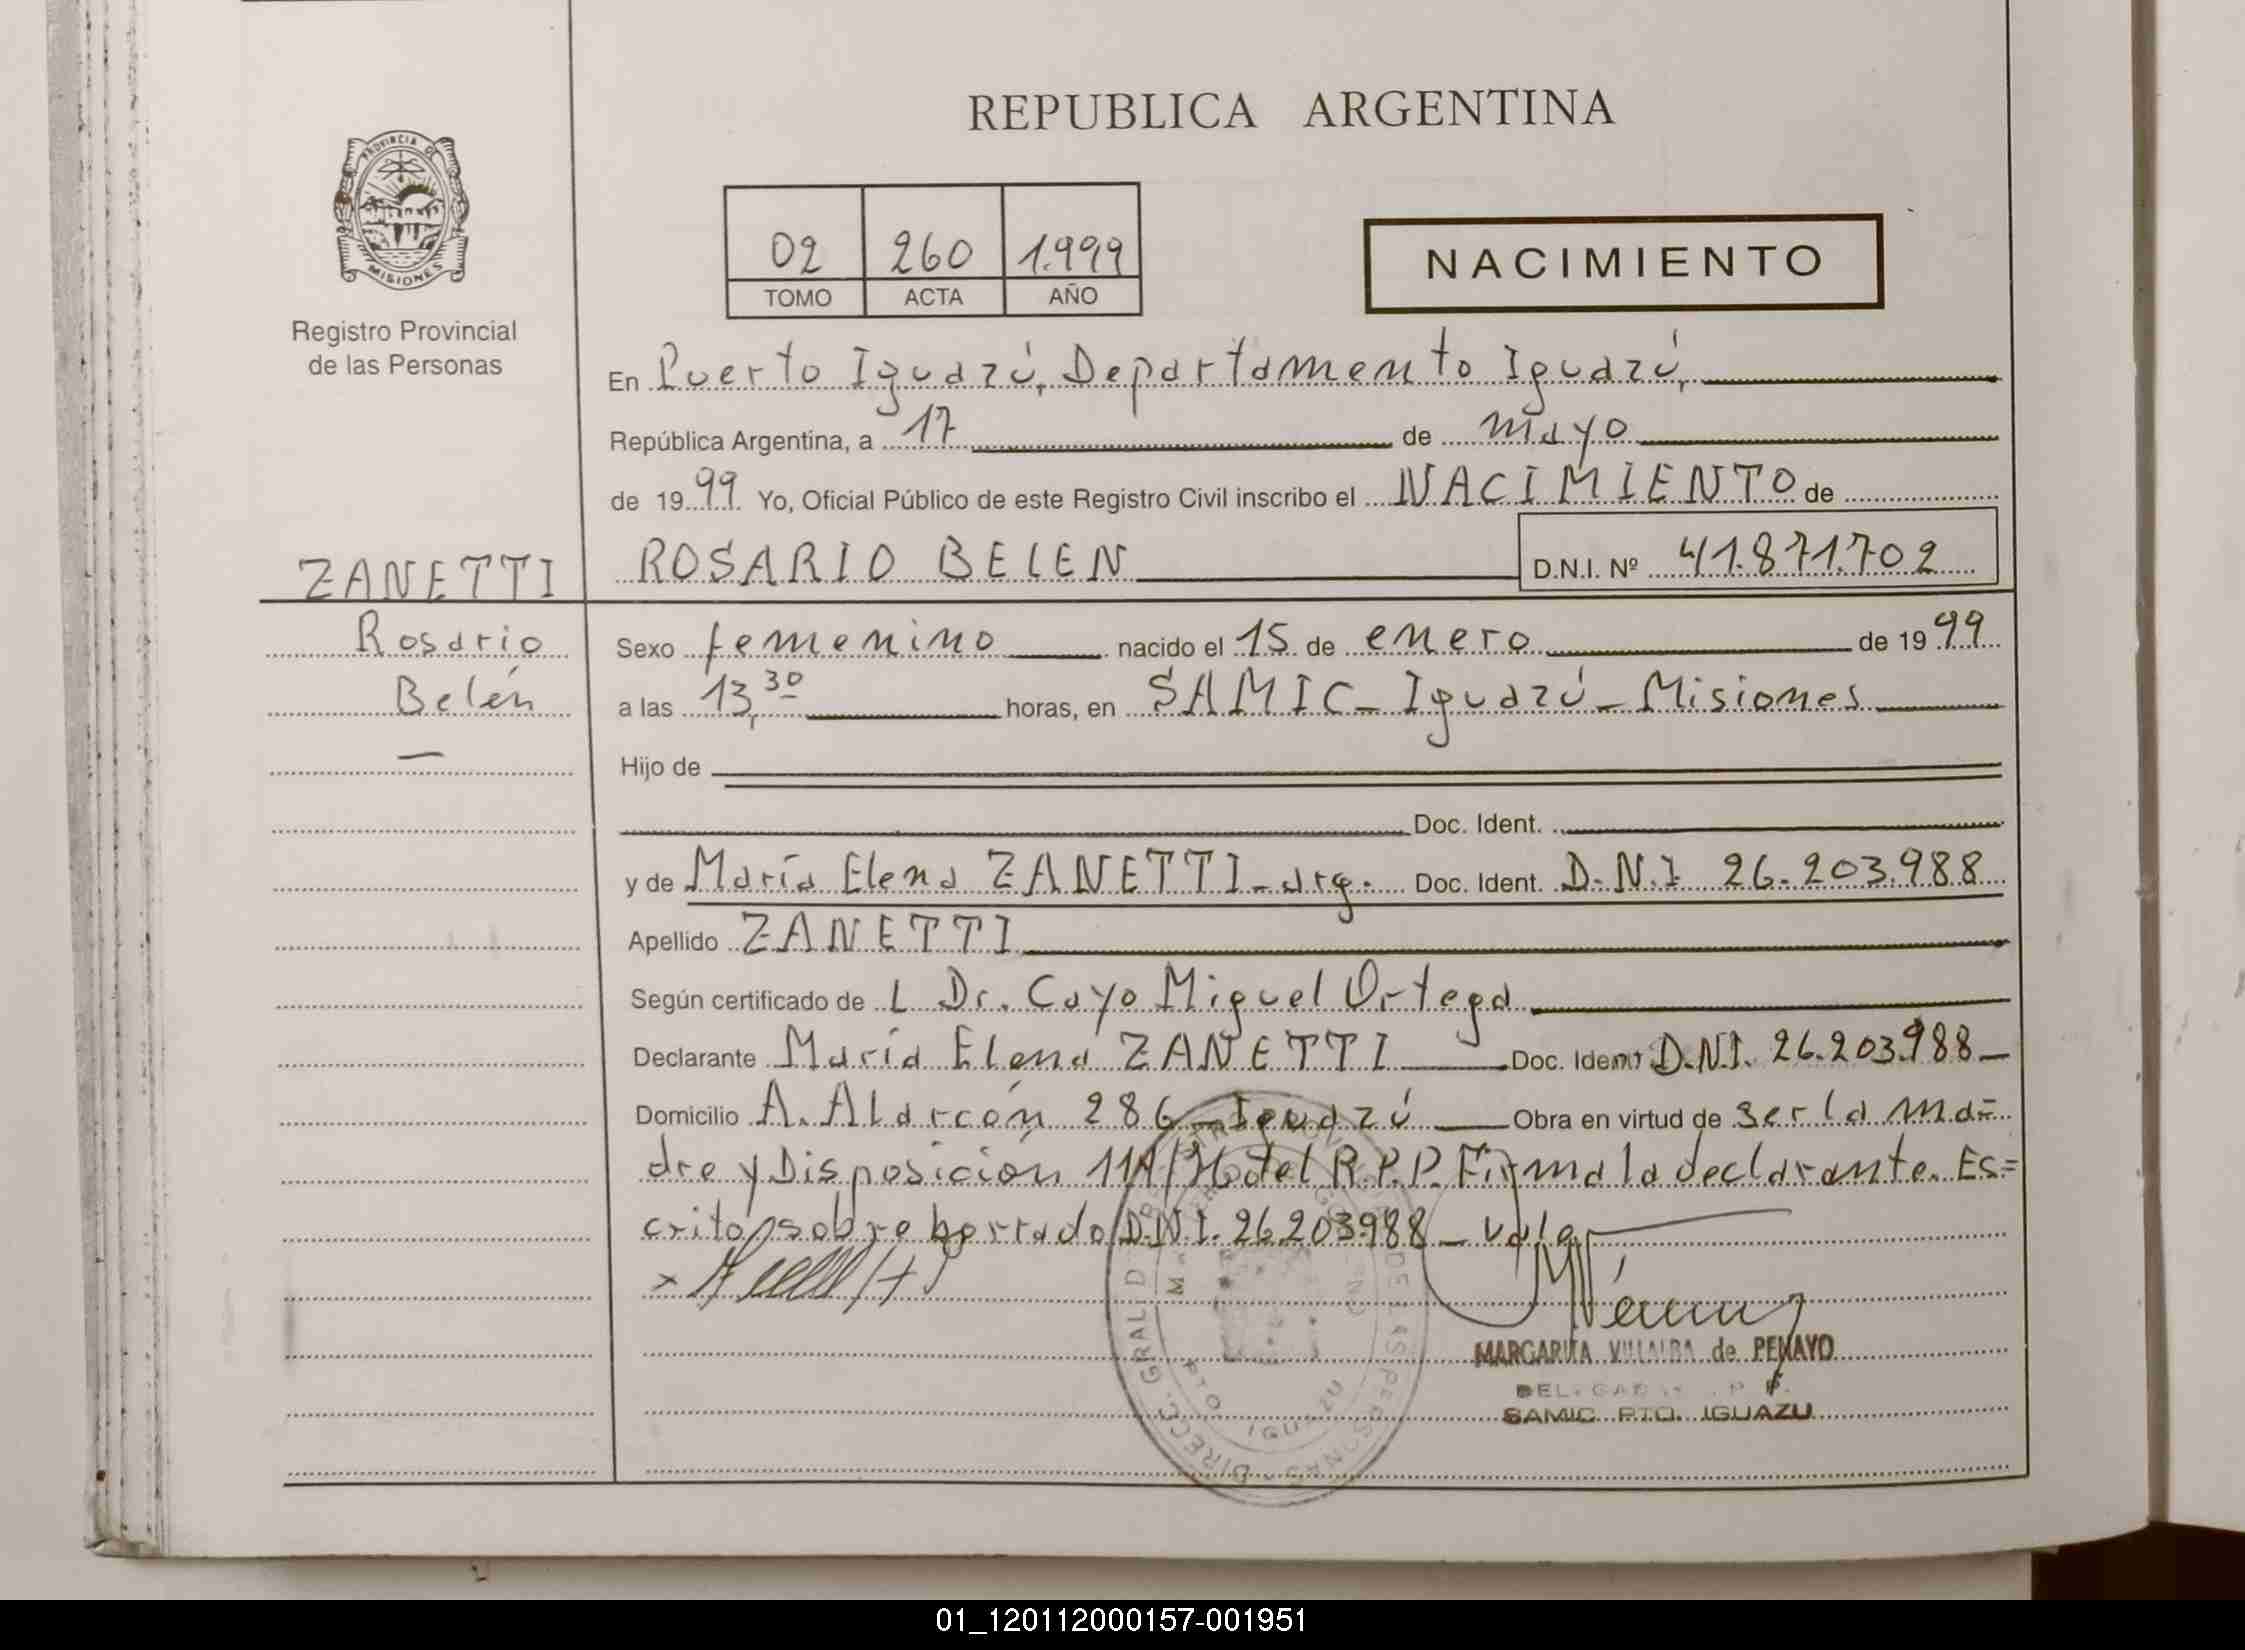 REPUBLICA ARGENTINA
PROVINCIA DE
MISIONES
Registro Provincial
de las Personas
02 260 1.999
TOMO ACTA AÑO
NACIMIENTO
En Puerto Iguazú, Departamento Iguazú,
República Argentina, a 17 de mayo
de 1999 Yo, Oficial Público de este Registro Civil inscribo el NACIMIENTO de
ZANETTI ROSARIO BELEN D.N.I. Nº 41.871.702
Rosario Sexo femenino nacido el 15 de enero de 1999
Belén a las 13,30 horas, en SAMIC_ Iguazú_ Misiones
Hijo de
Doc. Ident.
y de María Elena ZANETTI_arg. Doc. Ident. D.N.I 26.203.988
Apellido ZANETTI
Según certificado de L Dr. Cayo Miguel Ortega
Declarante María Elena ZANETTI Doc. Ident D.N.I. 26.203.988_
Domicilio A. Alarcón 286_Iguazú Obra en virtud de ser la ma=
dre y Disposición del R.P.P. Firma la declarante. Es=
crito sobre borrado D.N.I. 26.203.988_ vale
MARGARITA VILLALBA de PENAYO
SAMIC PTO. IGUAZU
PTO IGUAZU
01_120112000157-001951